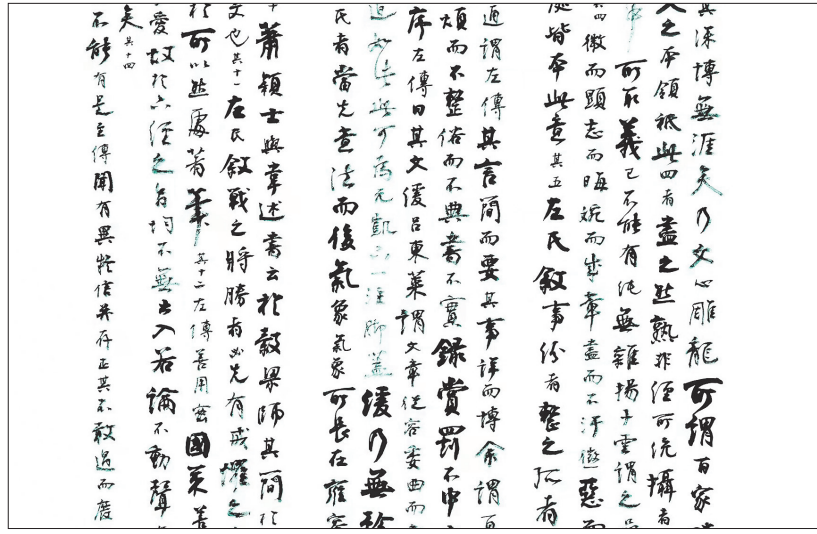 其深博無涯矣乃文心雕龍可謂百家
之本領祗此四者盡之然孰非經可統攝者
可取義已不能有純無雜揚子雲謂之
其四微而顯志而晦婉而成章盡而不汙懲惡而
處皆本此意其五左氏敘事紛者整之孤者
謂左傳其言簡而要其事詳而博余謂百
煩而不整俗而不典書不實錄賞罰不中
序左傳曰其文緩呂東萊謂文章從容委曲而
元凱序注腳蓋緩乃無
氏者當先查法而後氣象氣象可長在雍容
蕭穎士與韋述書云於穀梁師其簡於
文也其十一左氏敘戰之將勝者必先有戒懼之
於可以然處著筆其十二左傳善用密國策善
愛故於六經之旨均不無出入若論不動聲
矣其十四
不能有是左傳聞有異疑信并存正其不敢過而廢